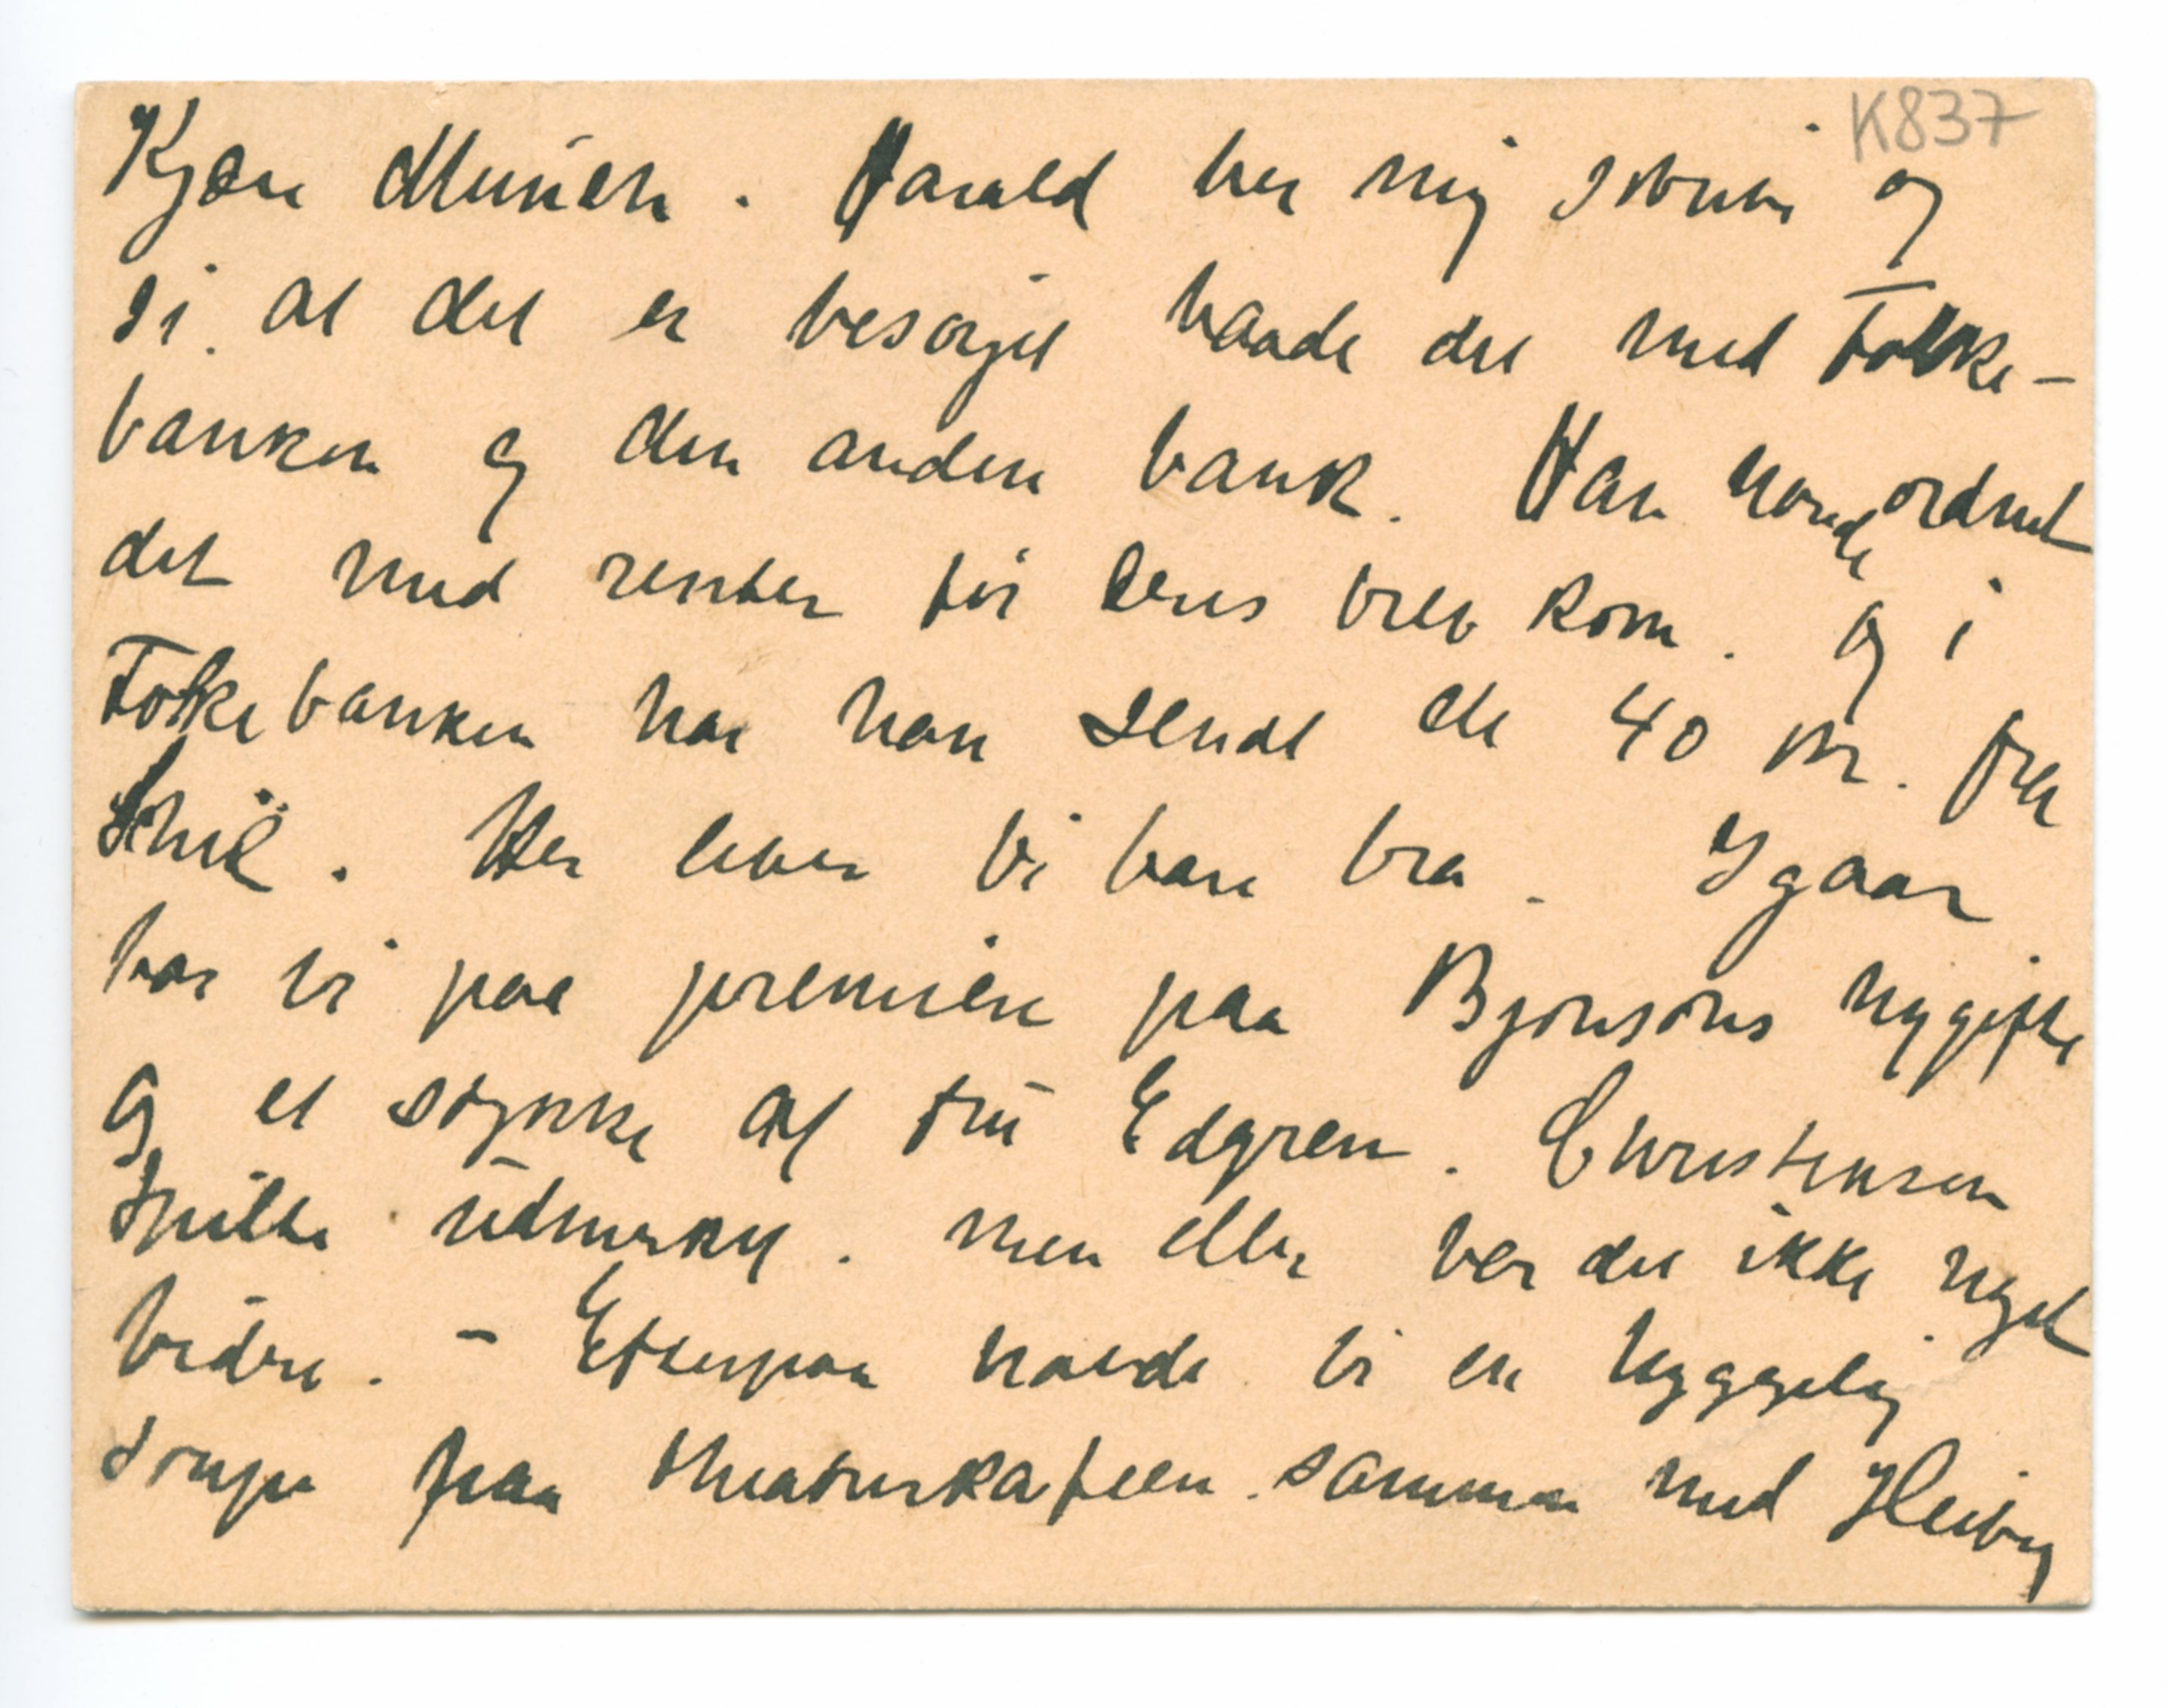 K837
Kjære Munch. Harald ber mig skrive og
si at det er besørget baade det med Folke-
banken og den anden bank. Han havde ordnet
det med renter før Deres brev kom. Og i
Folkebanken har han sendt de 40 kr. fra
Thiel. Her lever vi bare bra. Igaar
var vi paa premiere paa Bjørnsons nygifte
og et stykke af fru Edgren. Christensen
spilte udmerket. men eller var det ikke noget
videre. – Efterpaa havde vi en hyggelig
soupe paa theaterkafeen sammen med Heiberg